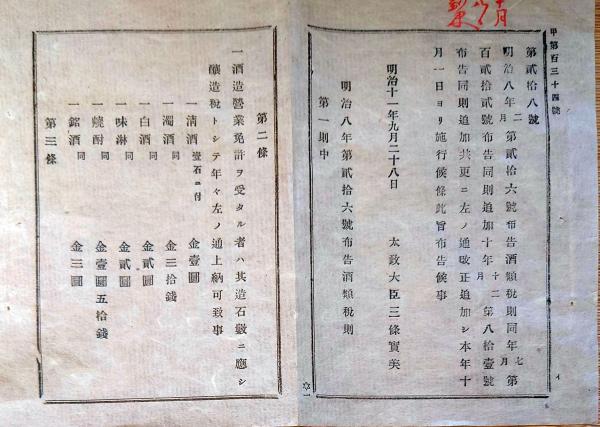 甲第百三十四號
第貳拾八號
明治八年二月第貳拾六號布告酒類税則同年七月第
百貳拾貳號布告同則追加十年十二月第八拾壹號
布告同則追加共更ニ左ノ通改正追加シ本年十
月一日ヨリ施行候條此旨布告候事
明治十一年九月二十八日
太政大臣三條實美
明治八年第貳拾六號布告酒類税則
第一則中
第二條
一酒造營業免許ヲ受タル者ハ其造石數ニ應シ
釀造税トシテ年々左ノ通上納可致事
一清酒 壹石ニ付 金壹圓
一濁酒 同 金三拾錢
一白酒 同 金貳圓
一味淋 同 金貳圓
一燒酎 同 金壹圓五拾錢
一銘酒 同 金三圓
第三條